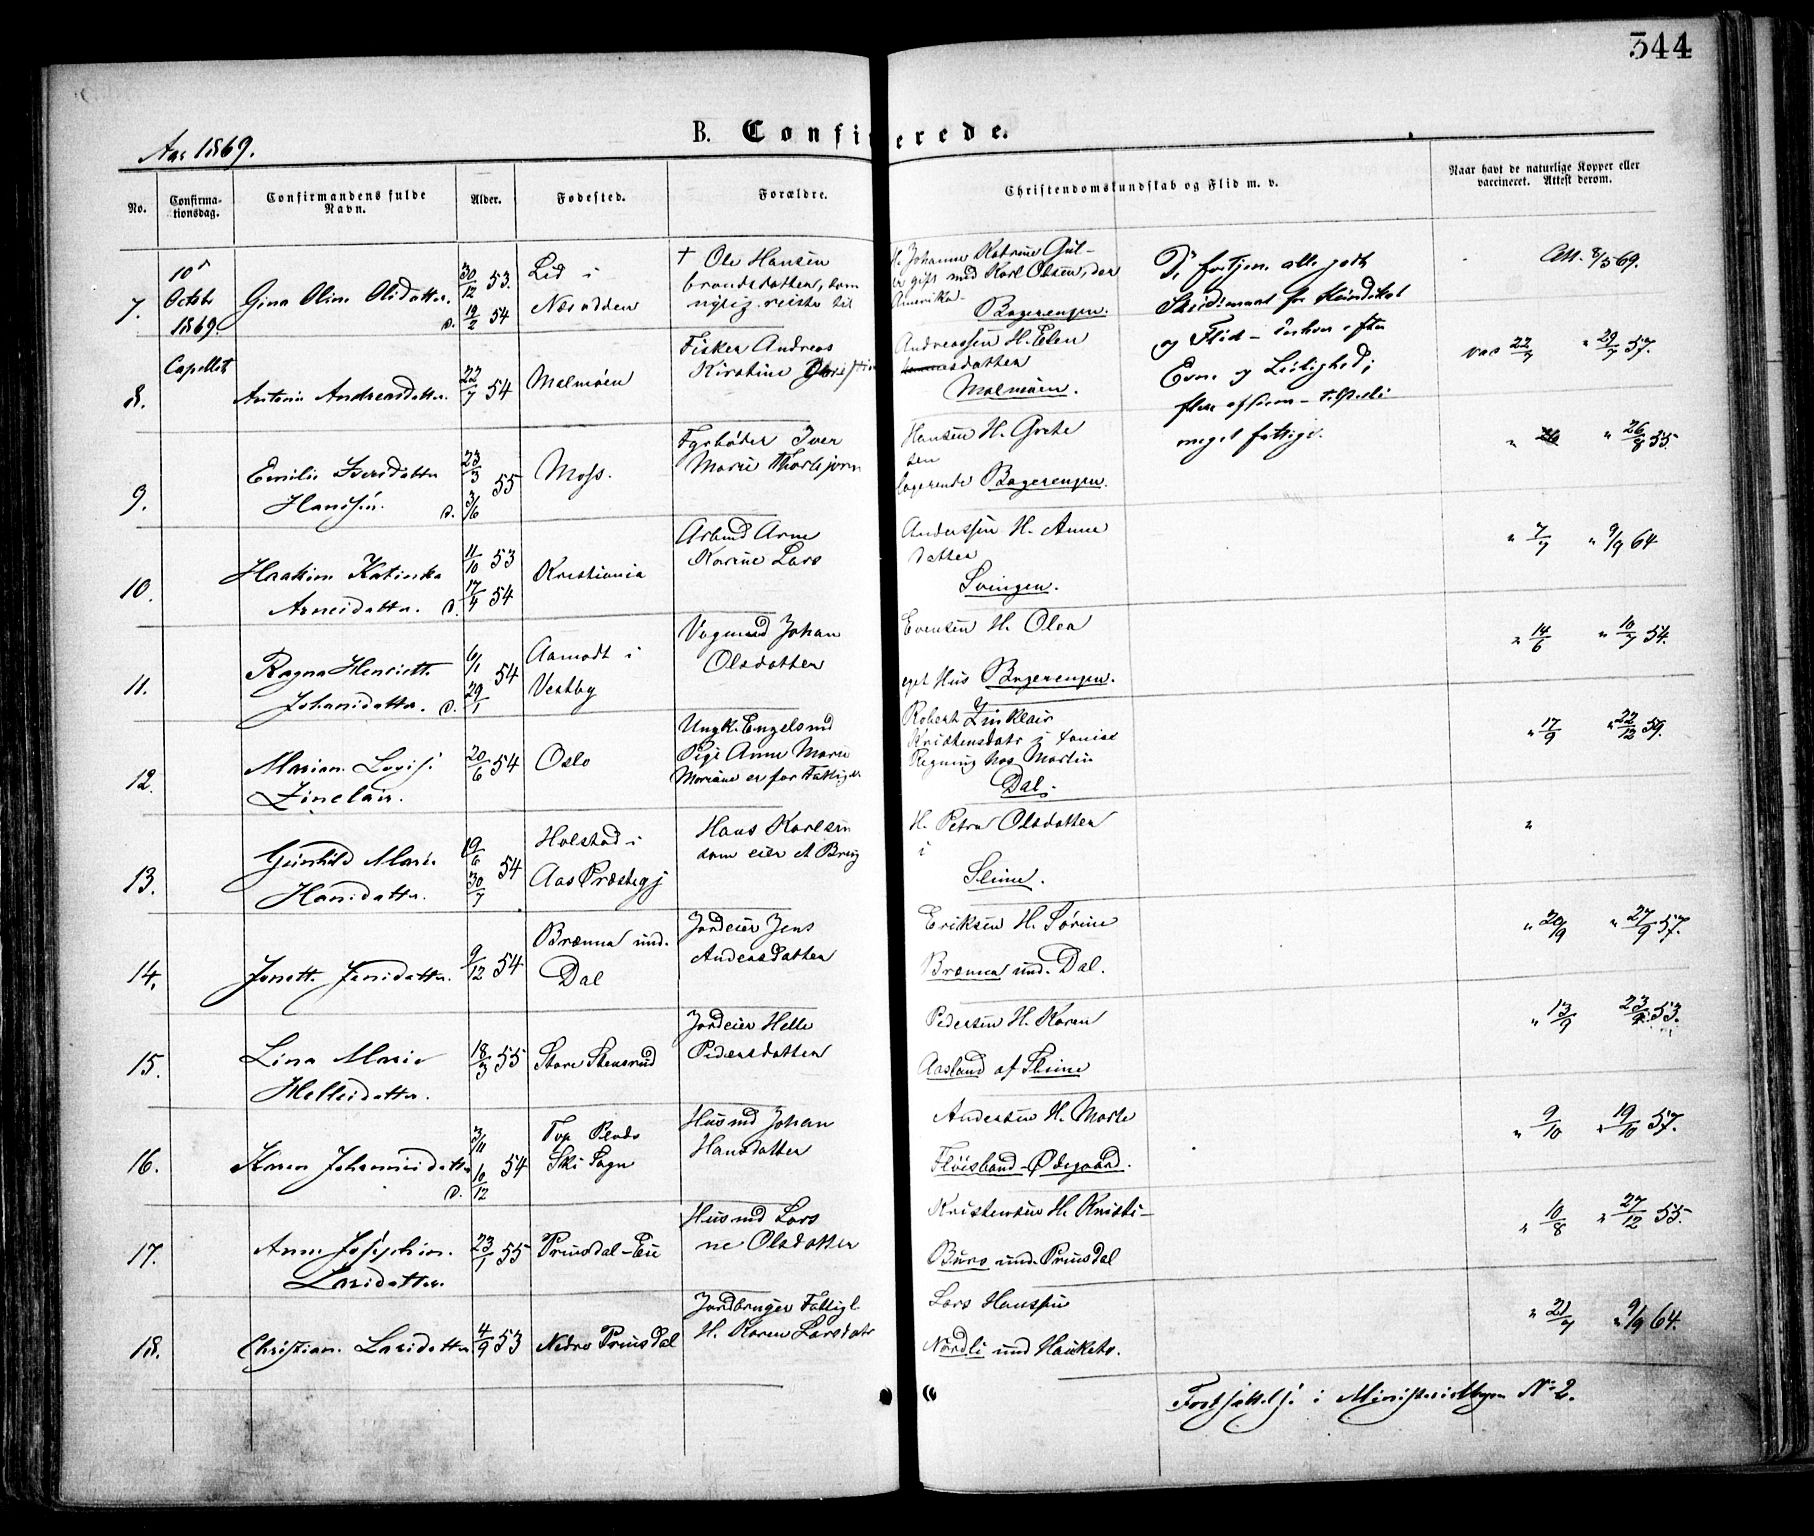 344
Aar 1869.
B. Confirmerede.
No.
Confirma-
tionsdag.
Confirmandens fulde
Navn.
Alder.
Fødested.
Forældre.
Christendomskundskab og Flid m. v.
Naar havt de naturlige Kopper eller
vaccineret. Attest derom.
7.
10
Octob
1869.
Capellet
Gina Oline Olsdatter.
30/12 53.
d. 19/2 54
Lid i
Næsodden
† Ole Hansen H. Johanne Katrine Gul-
brandsdatter, som er gift med Karl Olsen, der
nylig reiste til Amerika.
Bagerengen.
De fortjene alle godt
Skudsmaal for Kundskab
og Flid - enhver efter
Evne og Leilighed;
flere af dem
meget fattige.
Att. 8/5 69.
8.
Antonie Andreasdatter.
22/7 54
Malmøen
Fisker Andreas Andreassen H. Elen
Kirstine
Malmøen.
vac 22/7 " 29/7 57.
9.
Emilie Iversdatter
Hansen.
23/3 55
d. 3/6
Moss.
Fyrbøder Iver Hansen H. Grethe
Marie Thorbjørn sen
logerende Bagerengen.
" 26/8 55.
10.
Haakine Katinka
Arnesdatter.
11/10 53
d. 17/4 54
Kristiania
Arbmd Arne Anderssen H. Anne
Karine Lars datter
Svingen.
" 7/7 " 9/9 64
11.
Ragna Henriette
Johansdatter.
6/1 54
d. 29/1
Aamodt i
Vestby
Vognmd Johan Evensen H. Olea
Olsdatter
eget Hus Bagerengen.
" 14/6 " 10/7 54.
12.
Mariane Lovise
Zinclair.
20/6 54
Oslo
Ungk. Engelsmd Robert Zinklair
Pige Anne Marie Kristensdatr
Mariane er for Fattigv. Regning hos Martin
Dal.
" 17/9 " 22/12 59.
13.
Gunhild Marie
Hansdatter.
19/6 54
30/7
Holstad i
Aas Præstegj
Hans Karlsen H. Petra Olsdatter
som eier et Brug i
Slime.
"
14.
Jonette Jensdatter.
9/12 54
Brænna und.
Dal
Jordeier Jens Eriksen H. Sørine
Andersdatter
Brænna und. Dal.
" 20/9 " 27/9 57.
15.
Lina Marie
Hellesdatter.
18/3 55
Store Stensrud
Jordeier Helle Pedersen H. Karen
Pedersdatter
Aasland af Slime
" 13/9 23/9 53.
16.
Karen Johannesdatter
3/11 54
d. 10/12
Ski Sogn
Husmd Johan Andersen H. Marte
Hansdatter
Fløisbond-Ødegaard.
" 9/10 " 19/10 57.
17.
Anne Josephine
Larsdatter.
23/1 55
Prinsdal-Eie
Husmd Lars Kristensen H. Kristi-
ne Olsdatter
Buro und. Prinsdal
" 10/8 " 27/12 55.
18.
Christiane Larsdatter.
4/9 53
Nedre Prinsdal
Jordbruger Fattigl. Lars Hanssen
H. Karen Larsdatr
Nordli und Hauketo.
" 21/7 " 9/9 64.
Fortsættelse i Ministerialbogen No 2.